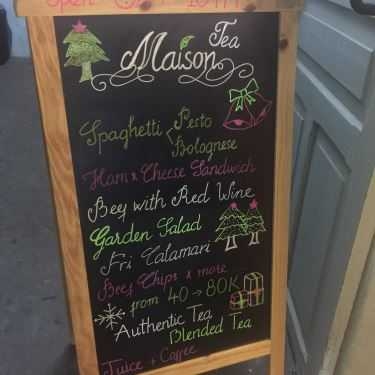 Open
Maison Tea
Spaghetti Pesto
Bolognese
Ham & Cheese Sandwich
Beef with Red Wine
Garden Salad
Fri Calamari
Beef Chips & more
from 40 → 80K
Authentic Tea
Blended Tea
Juice + Coffee